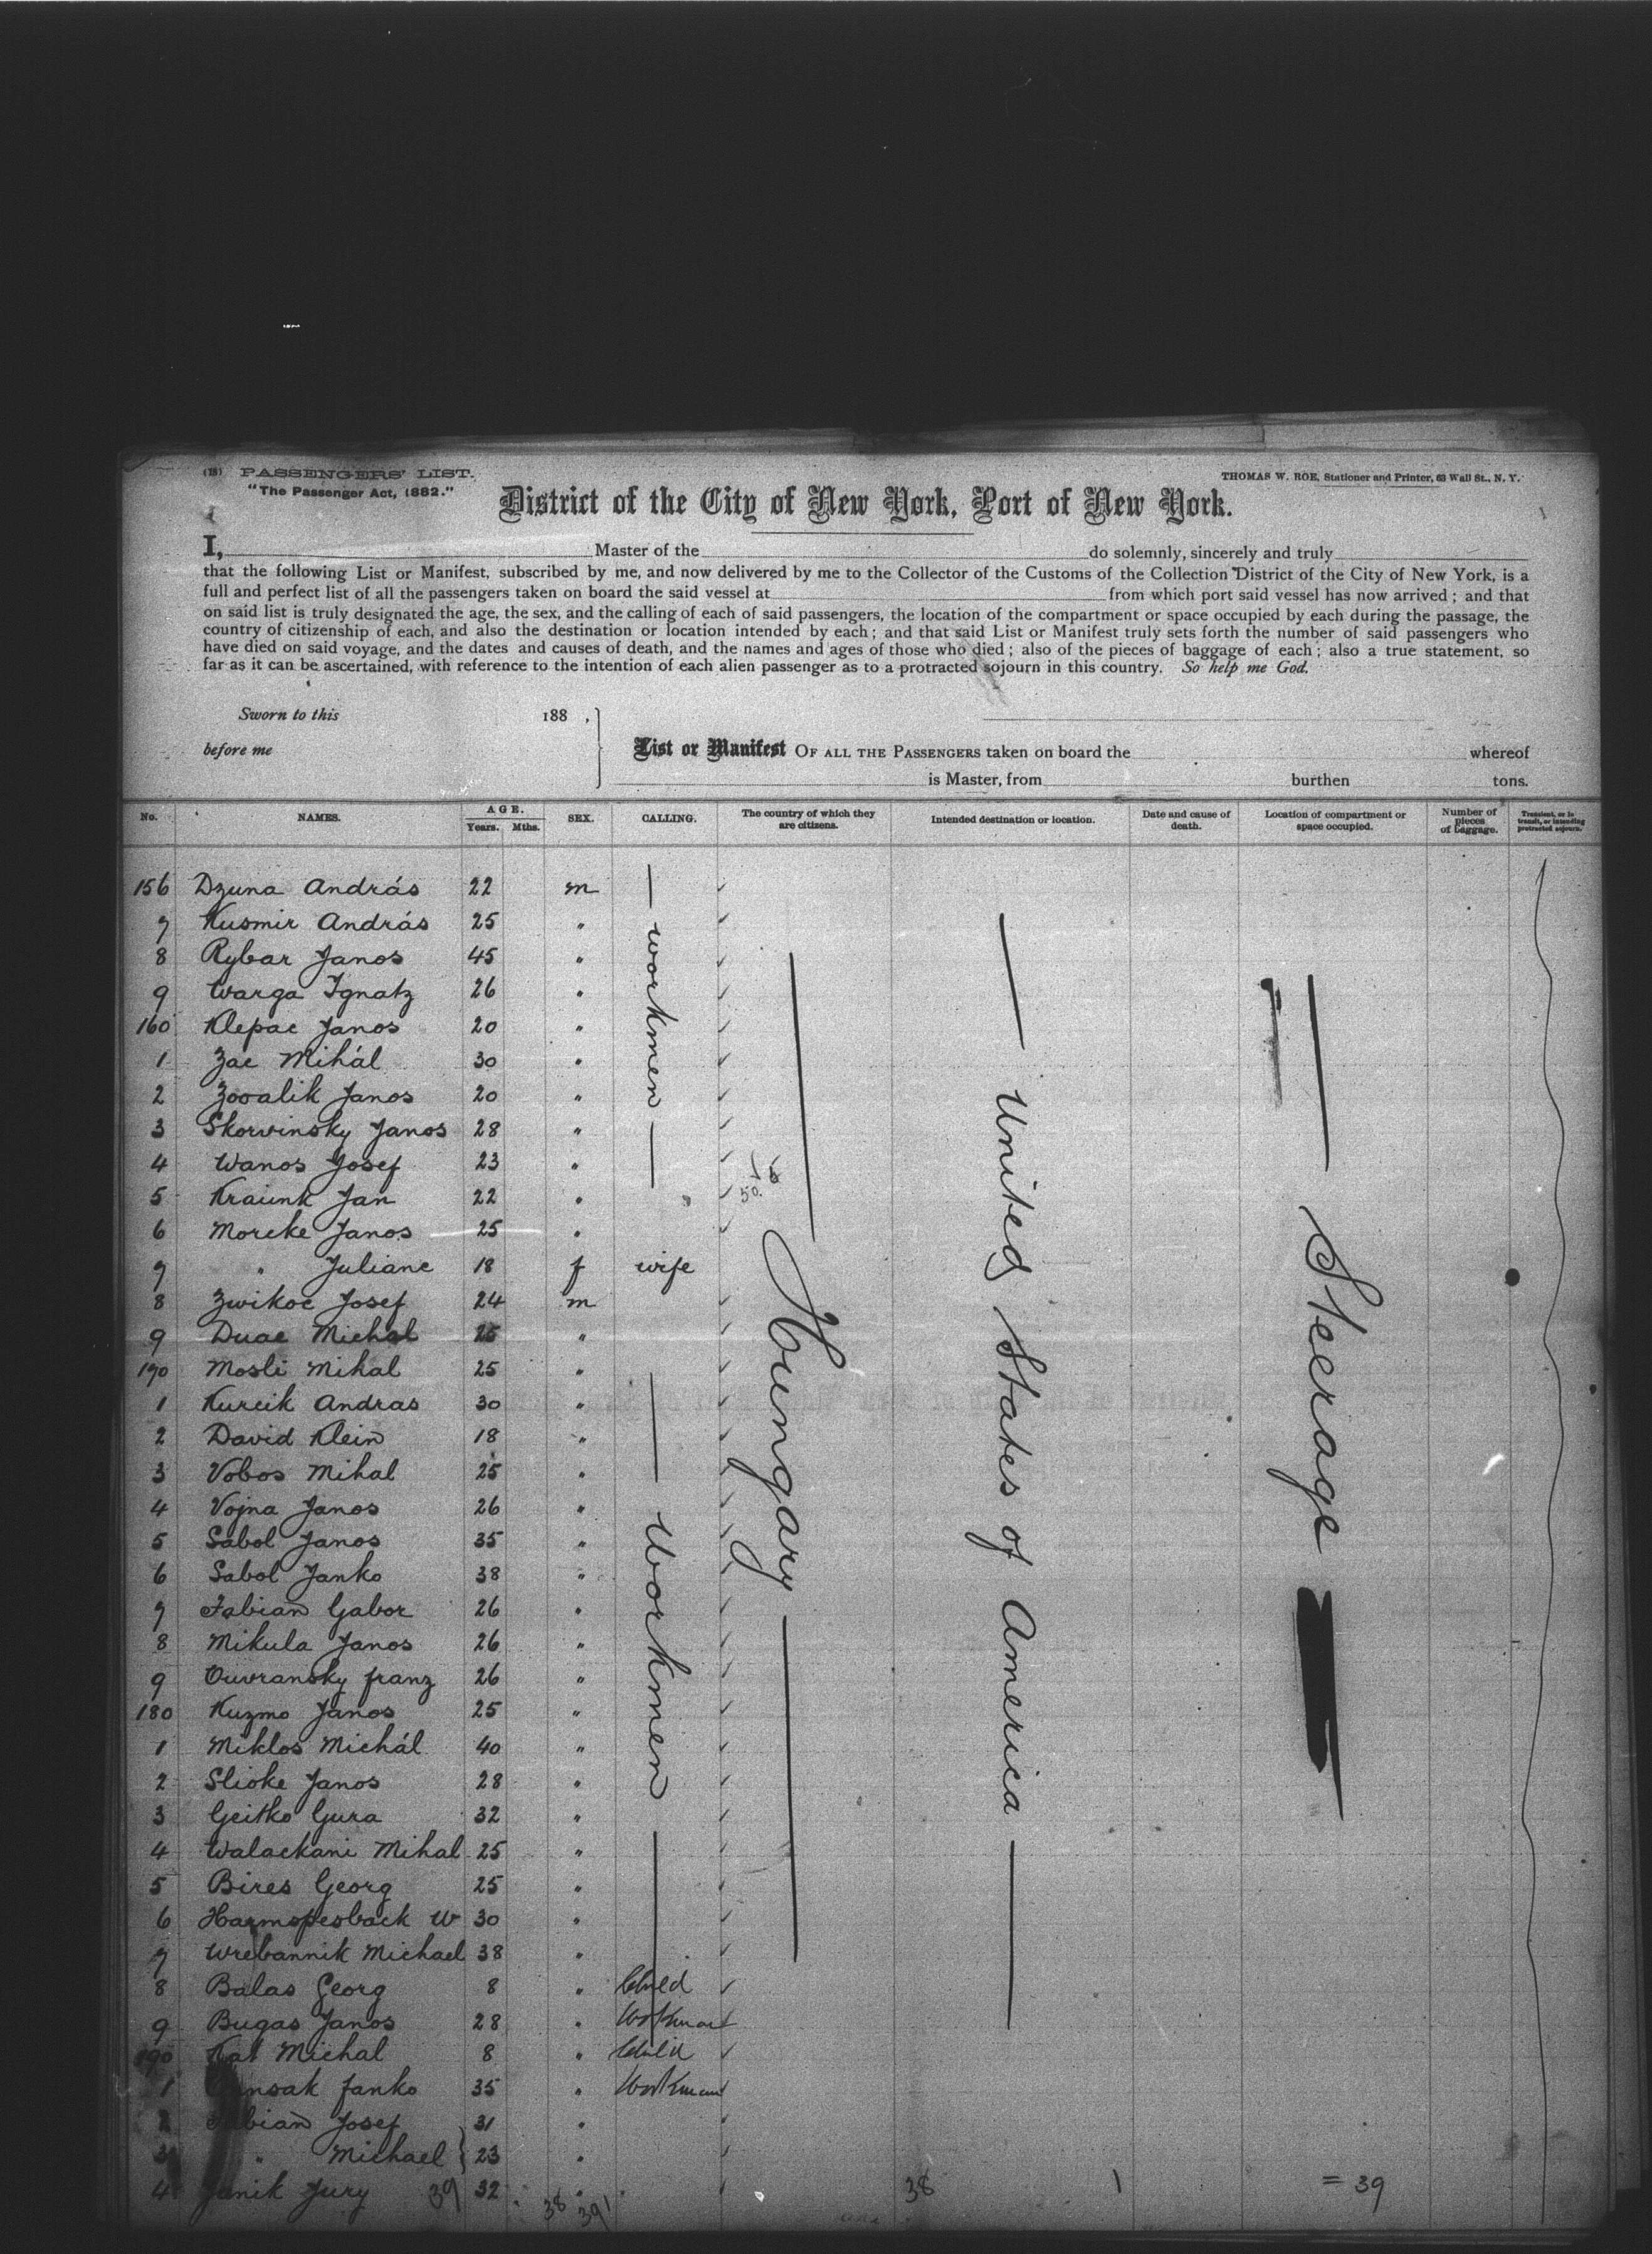 (18) PASSENGERS' LIST.
"The Passenger Act, 1882."
THOMAS W. ROE, Stationer and Printer, 63 Wall St., N. Y.
District of the City of New York, Port of New York.
I, Master of the do solemnly, sincerely and truly
that the following List or Manifest, subscribed by me, and now delivered by me to the Collector of the Customs of the Collection District of the City of New York, is a
full and perfect list of all the passengers taken on board the said vessel at from which port said vessel has now arrived; and that
on said list is truly designated the age, the sex, and the calling of each of said passengers, the location of the compartment or space occupied by each during the passage, the
country of citizenship of each, and also the destination or location intended by each; and that said List or Manifest truly sets forth the number of said passengers who
have died on said voyage, and the dates and causes of death, and the names and ages of those who died; also of the pieces of baggage of each; also a true statement, so
far as it can be ascertained, with reference to the intention of each alien passenger as to a protracted sojourn in this country. So help me God.
Sworn to this 188 ,
before me
List or Manifest OF ALL THE PASSENGERS taken on board the whereof
is Master, from burthen tons.
No. NAMES. AGE. Years. Mths. SEX. CALLING. The country of which they are citizens. Intended destination or location. Date and cause of death. Location of compartment or space occupied. Number of pieces of baggage. Transient, or in transit, or intending protracted sojourn.
156 Dzuna András 22 m
7 Kusmir András 25 "
8 Rybar Janos 45 "
9 Warga Ignatz 26 "
160 Klepac Janos 20 "
1 Zac Mihál 30 "
2 Zovalik Janos 20 "
3 Skorvinsky Janos 28 "
4 Wanos Josef 23 "
5 Kraunk Jan 22 "
6 Morcke Janos 25 "
7 " Juliane 18 f wife
8 Zwikoc Josef 24 m
9 Duac Michal 25 "
170 Mosli Mihal 25 "
1 Kurcik Andras 30 "
2 David Klein 18 "
3 Vobos Mihal 25 "
4 Vojna Janos 26 "
5 Sabol Janos 35 "
6 Sabol Janko 38 "
7 Fabian Gabor 26 "
8 Mikula Janos 26 "
9 Ouvransky franz 26 "
180 Kuzmo Janos 25 "
1 Miklos Michál 40 "
2 Slioke Janos 28 "
3 Geitko Gura 32 "
4 Walackani Mihal 25 "
5 Bires Georg 25 "
6 Harmspesback W 30 "
7 Wrebannik Michael 38 "
8 Balas Georg 8 " Child
9 Bugas Janos 28 " Workman
190 Kat Michal 8 " Child
1 janko 35 " Workman
2 Fabian Josef 31 "
3 " Michael 23 "
4 Janik Jury 39 32 "
workmen
Workmen
Hungary
United States of America
Steerage
38 39 1
38 1 = 39